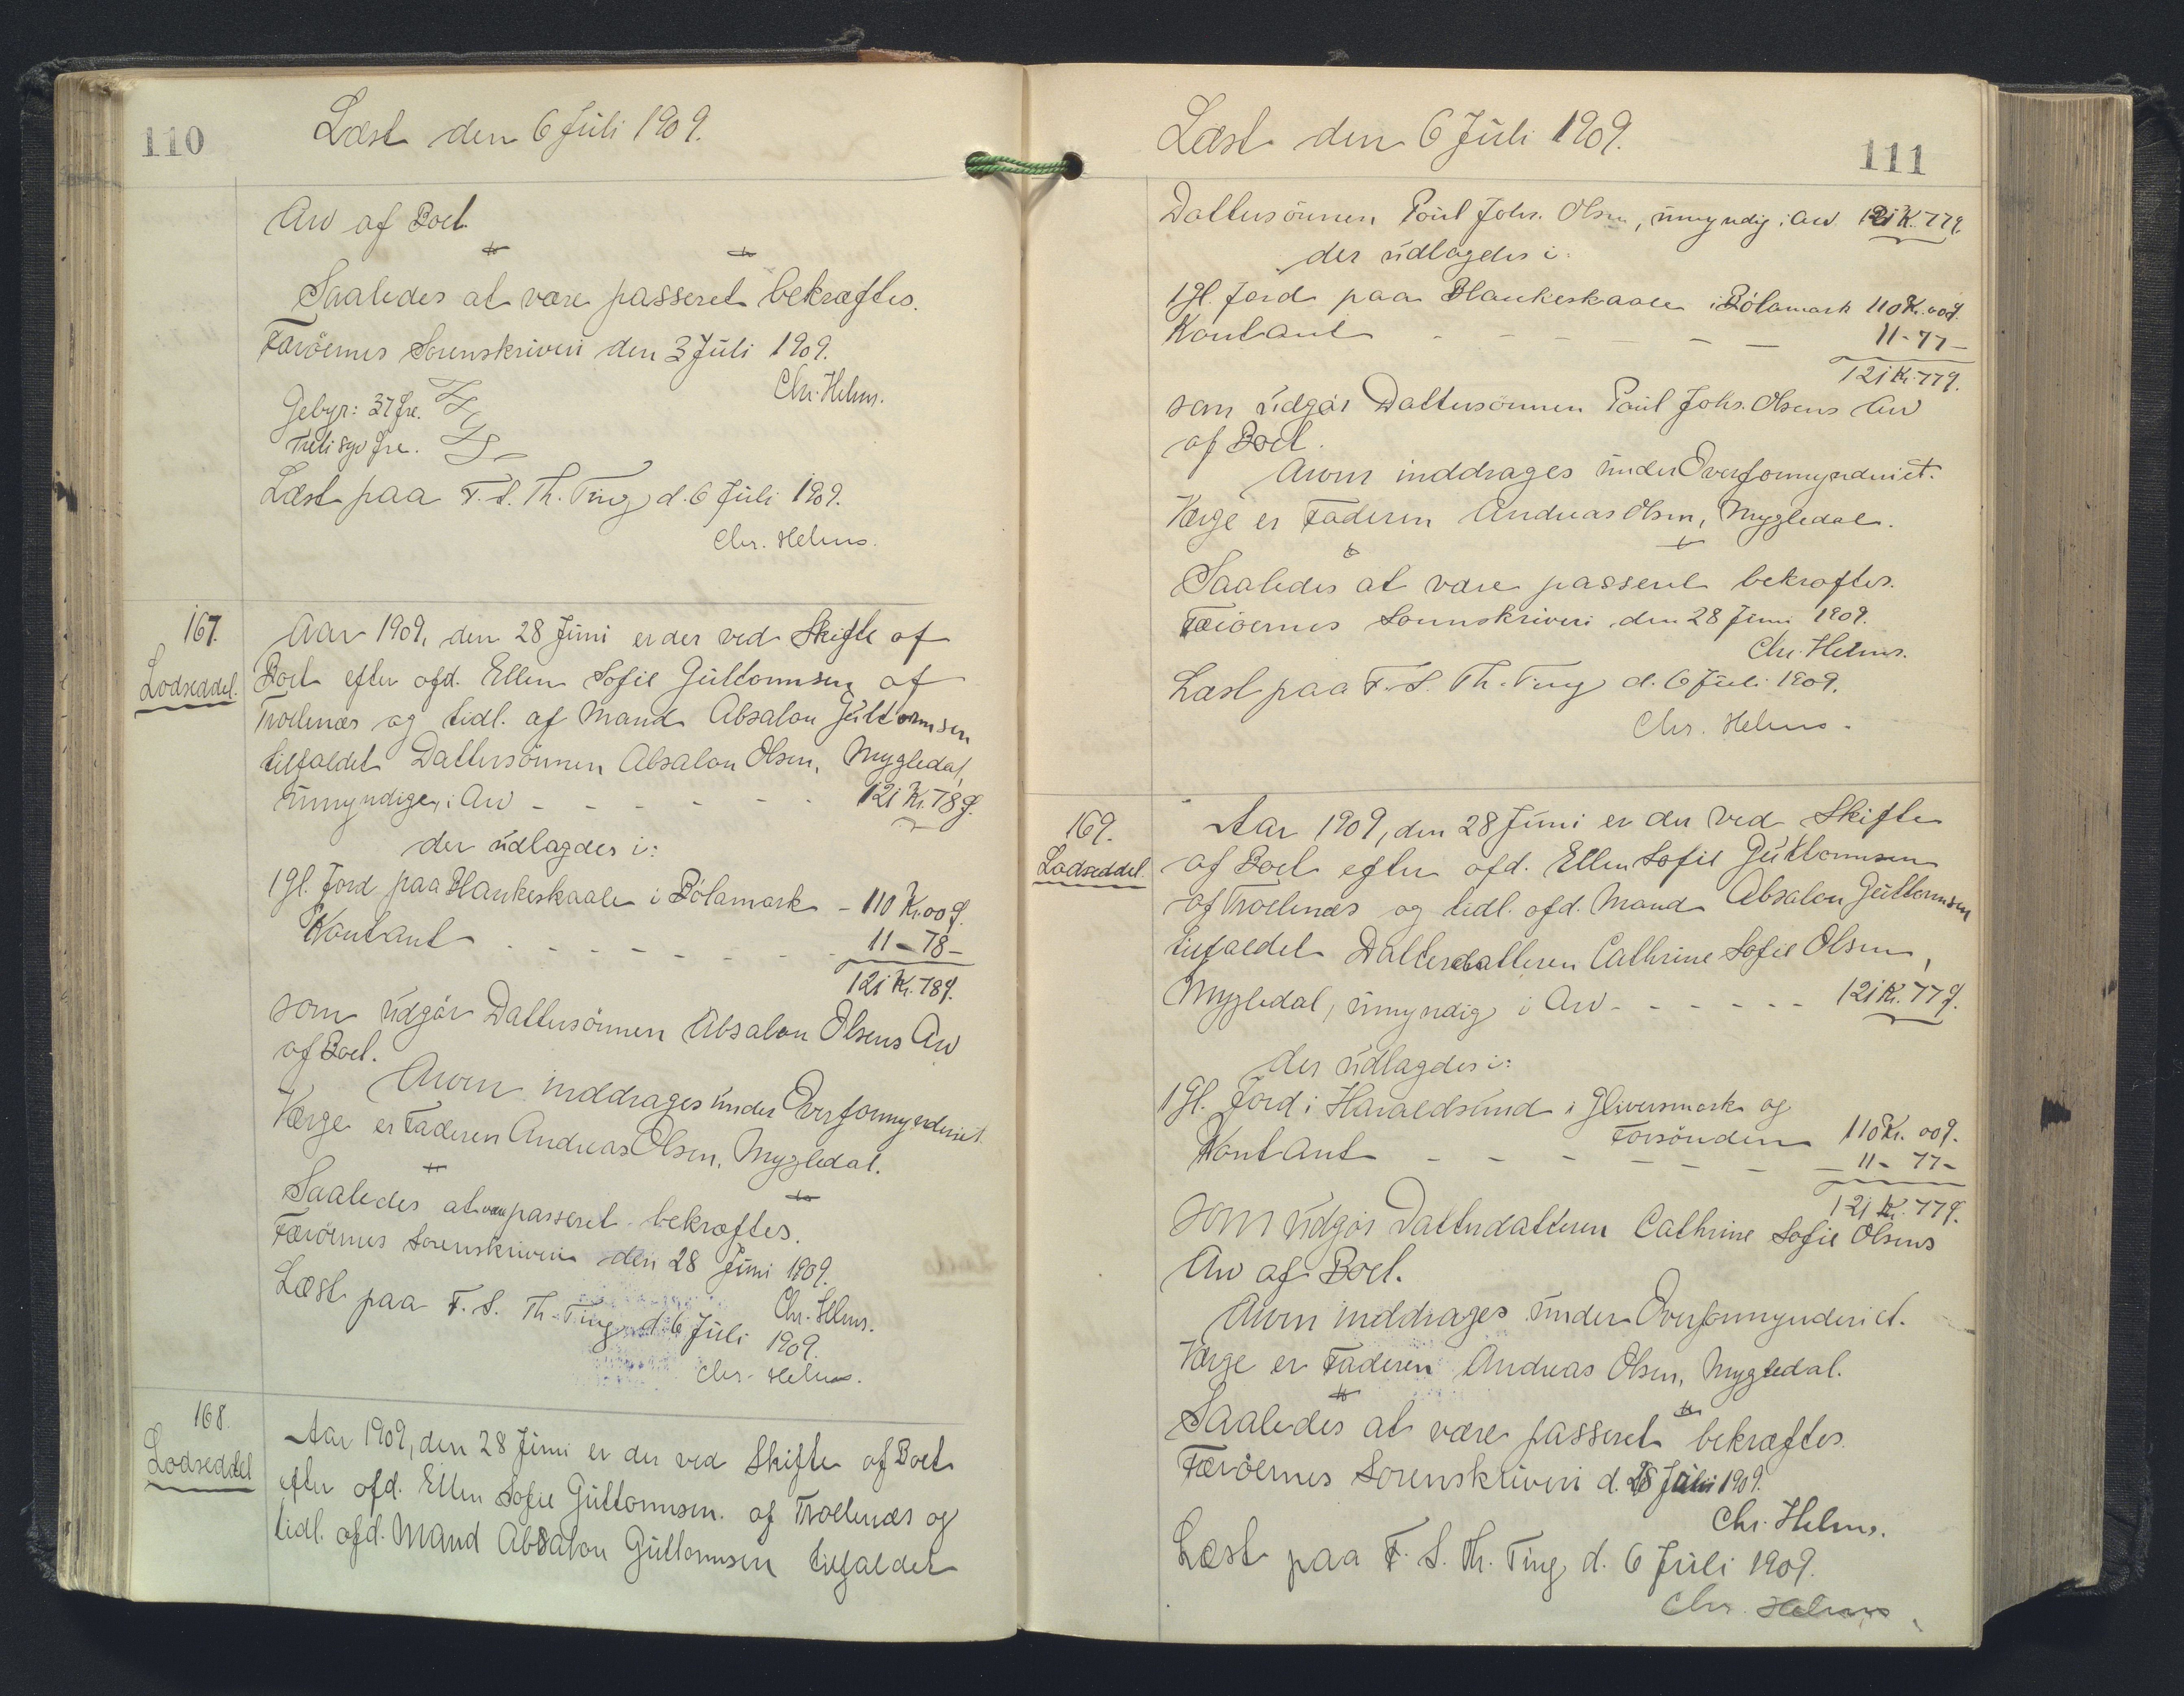 110
Læst den 6 Juli 1909.
Arv af Boet
Saaledes at være passeret bekræftes.
Færöernes Sorenskriveri den 3 Juli 1909.
Chr. Helms.
Gebyr: 37 Øre.
Tretisyv Øre.
Læst paa F. S. Th. Ting d. 6 Juli 1909.
Chr. Helms.
167.
Lodseddel.
Aar 1909, den 28 Juni er der ved Skifte af
Boet efter afd. Ellen Sofie Guttormsen af
Trollenæs og tidl. af Mand Absalon Guttormsen
tilfaldet Dattersönnen Absalon Olsen, Mygledal,
umyndige, i Arv - - - - - - 121 Kr. 78 Ø.
der udlagdes i:
1 Gl. Jord paa Blankeskaale i Bólamark - 110 Kr. 00 Ø.
Kontant - - - - - - - 11 - 78 -
121 Kr. 78 Ø.
som udgör Dattersönnen Absalon Olsens Arv
af Boet.
Arven inddrages under Overformynderiet.
Værge er Faderen Andreas Olsen, Mygledal.
Saaledes at være passeret bekræftes.
Færöernes Sorenskriveri den 28 Juni 1909.
Chr. Helms.
Læst paa F. S. Th. Ting d. 6 Juli 1909.
Chr. Helms.
168.
Lodseddel
Aar 1909, den 28 Juni er der ved Skifte af Boet
efter afd. Ellen Sofie Guttormsen. af Trollenæs og
tidl. afd. Mand Absalon Guttormsen tilfaldet
Læst den 6 Juli 1909.
111
Dattersönnen Poul Johs. Olsen, umyndig i Arv 121 K. 77 Ø.
der udlagdes i:
1 Gl. Jord paa Blankeskaale i Bólamark 110 Kr. 00 Ø.
Kontant - - - - - - 11 - 77 -
121 Kr. 77 Ø.
som udgör Dattersönnen Poul Johs. Olsens Arv
af Boet.
Arven inddrages under Overformynderiet.
Værge er Faderen Andreas Olsen, Mygledal.
Saaledes at være passeret bekræftes.
Færöernes Sorenskriveri den 28 Juni 1909.
Chr. Helms.
Læst paa F. S. Th. Ting d. 6 Juli 1909.
Chr. Helms.
169.
Lodseddel
Aar 1909, den 28 Juni er der ved Skifte
af Boet efter afd. Ellen Sofie Guttormsen
af Trollenæs og tidl. afd. Mand Absalon Guttormsen
tilfaldet Datterdatteren Cathrine Sofie Olsen,
Mygledal, umyndig i Arv - - - - - - 121 Kr. 77 Ø.
der udlagdes i:
1 Gl. Jord i Haraldsund i Gliversmark og
Forsönden 110 Kr. 00 Ø.
Kontant - - - - - - - 11 - 77 -
121 Kr. 77 Ø.
som udgör Datterdatteren Cathrine Sofie Olsens
Arv af Boet.
Arven inddrages under Overformynderiet.
Værge er Faderen Andreas Olsen, Mygledal.
Saaledes at være passeret bekræftes.
Færöernes Sorenskriveri d. 28 Juni 1909.
Chr. Helms.
Læst paa F. S. Th. Ting d. 6 Juli 1909.
Chr. Helms.